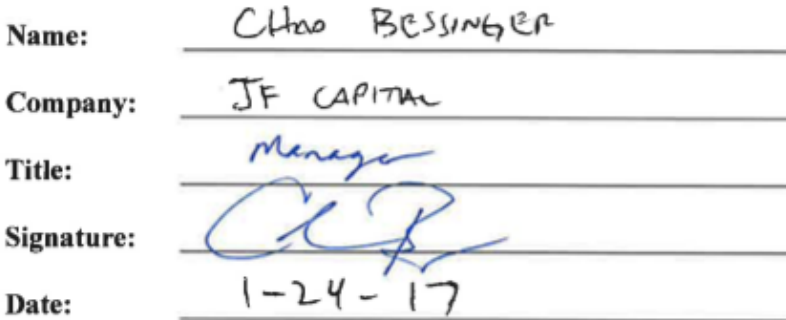 Name: CHAD BESSINGER
Company: JF CAPITAL
Title: Manager
Signature:
Date: 1-24-17